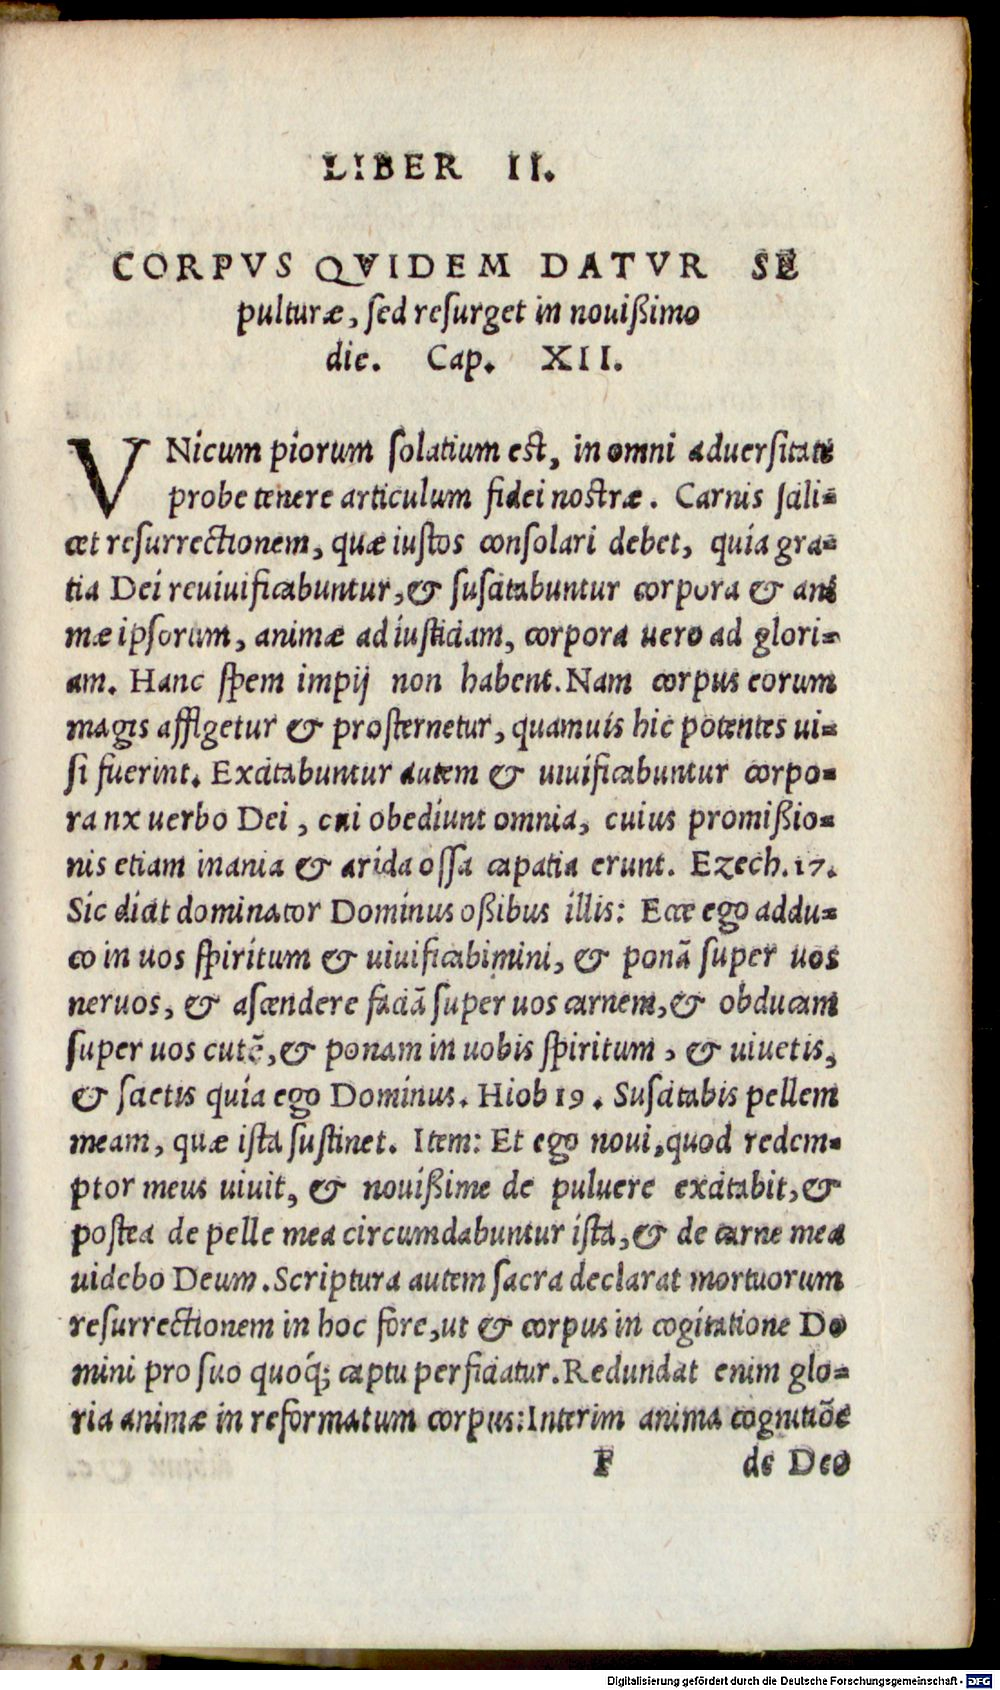 LIBER II.
CORPVS QVIDEM DATVR SE
pulturæ, sed resurget in nouißimo
die. Cap. XII.
VNicum piorum solatium est, in omni aduersitate
probe tenere articulum fidei nostræ. Carnis scili=
cet resurrectionem, quæ iustos consolari debet, quia gra=
tia Dei reuiuificabuntur, & suscitabuntur corpora & ani
mæ ipsorum, animæ ad iusticiam, corpora uero ad glori=
am. Hanc spem impij non habent. Nam corpus eorum
magis affligetur & prosternetur, quamuis hic potentes ui=
si fuerint. Excitabuntur autem & uiuificabuntur corpo=
ra nx uerbo Dei, cui obediunt omnia, cuius promißio=
nis etiam inania & arida ossa capatia erunt. Ezech. 17.
Sic dicit dominator Dominus oßibus illis: Ecce ego addu=
co in uos spiritum & uiuificabimini, & ponā super uos
neruos, & ascendere faciā super uos carnem, & obducam
super uos cutē, & ponam in uobis spiritum, & uiuetis,
& scietis quia ego Dominus. Hiob 19. Suscitabis pellem
meam, quæ ista sustinet. Item: Et ego noui, quod redem=
ptor meus uiuit, & nouißime de puluere excitabit, &
postea de pelle mea circumdabuntur ista, & de carne mea
uidebo Deum. Scriptura autem sacra declarat mortuorum
resurrectionem in hoc fore, ut & corpus in cogitatione Do
mini pro suo quoq; captu perficiatur. Redundat enim glo=
ria animæ in reformatum corpus: Interim anima cognitiōe
F de Deo
Digitalisierung gefördert durch die Deutsche Forschungsgemeinschaft - DFG